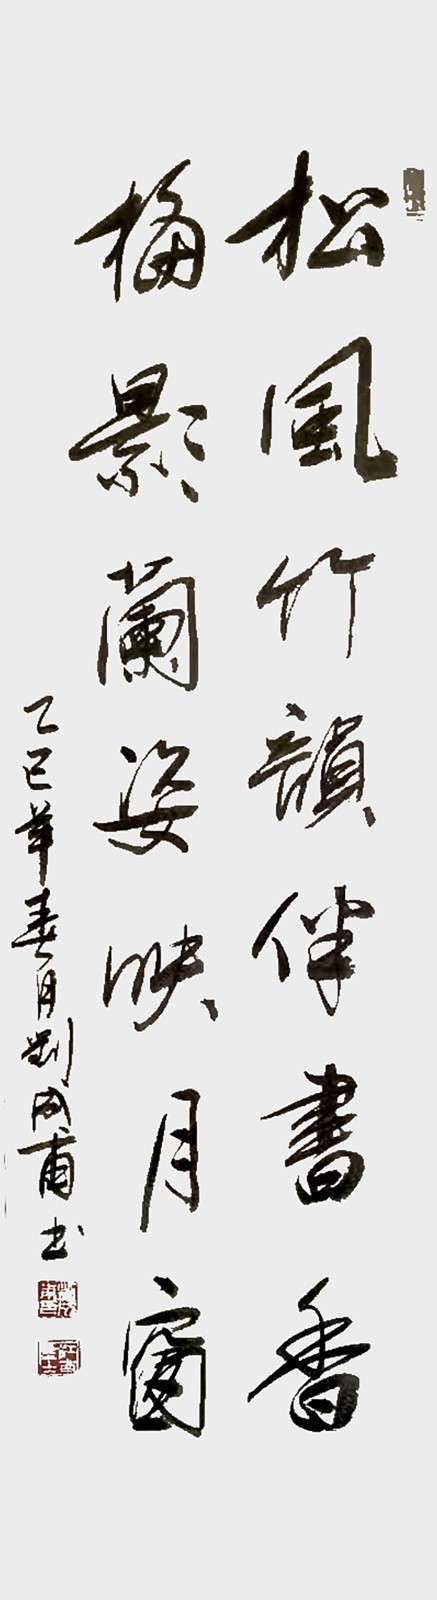 松風竹韻伴書香
梅影蘭姿映月窗
乙巳年春月劉成甫书